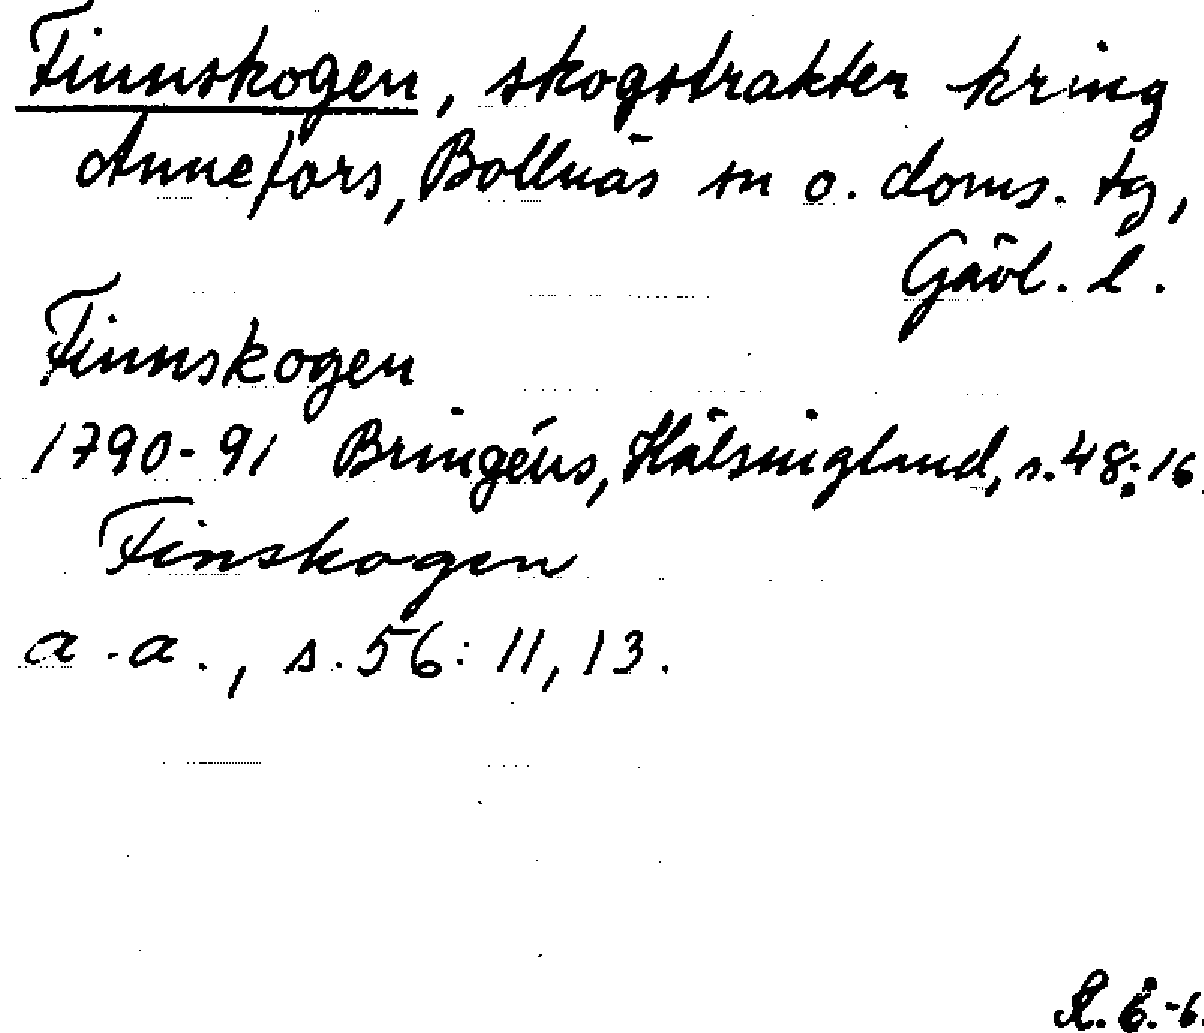 Finnskogen, skogstrakter kring
Annefors, Bollnäs sn o. doms. tg,
Gävl. l.
Finnskogen
1790-91 Bringéus, Hälsingland, s. 48:16.
Finskogen
a.a., s. 56: 11, 13.